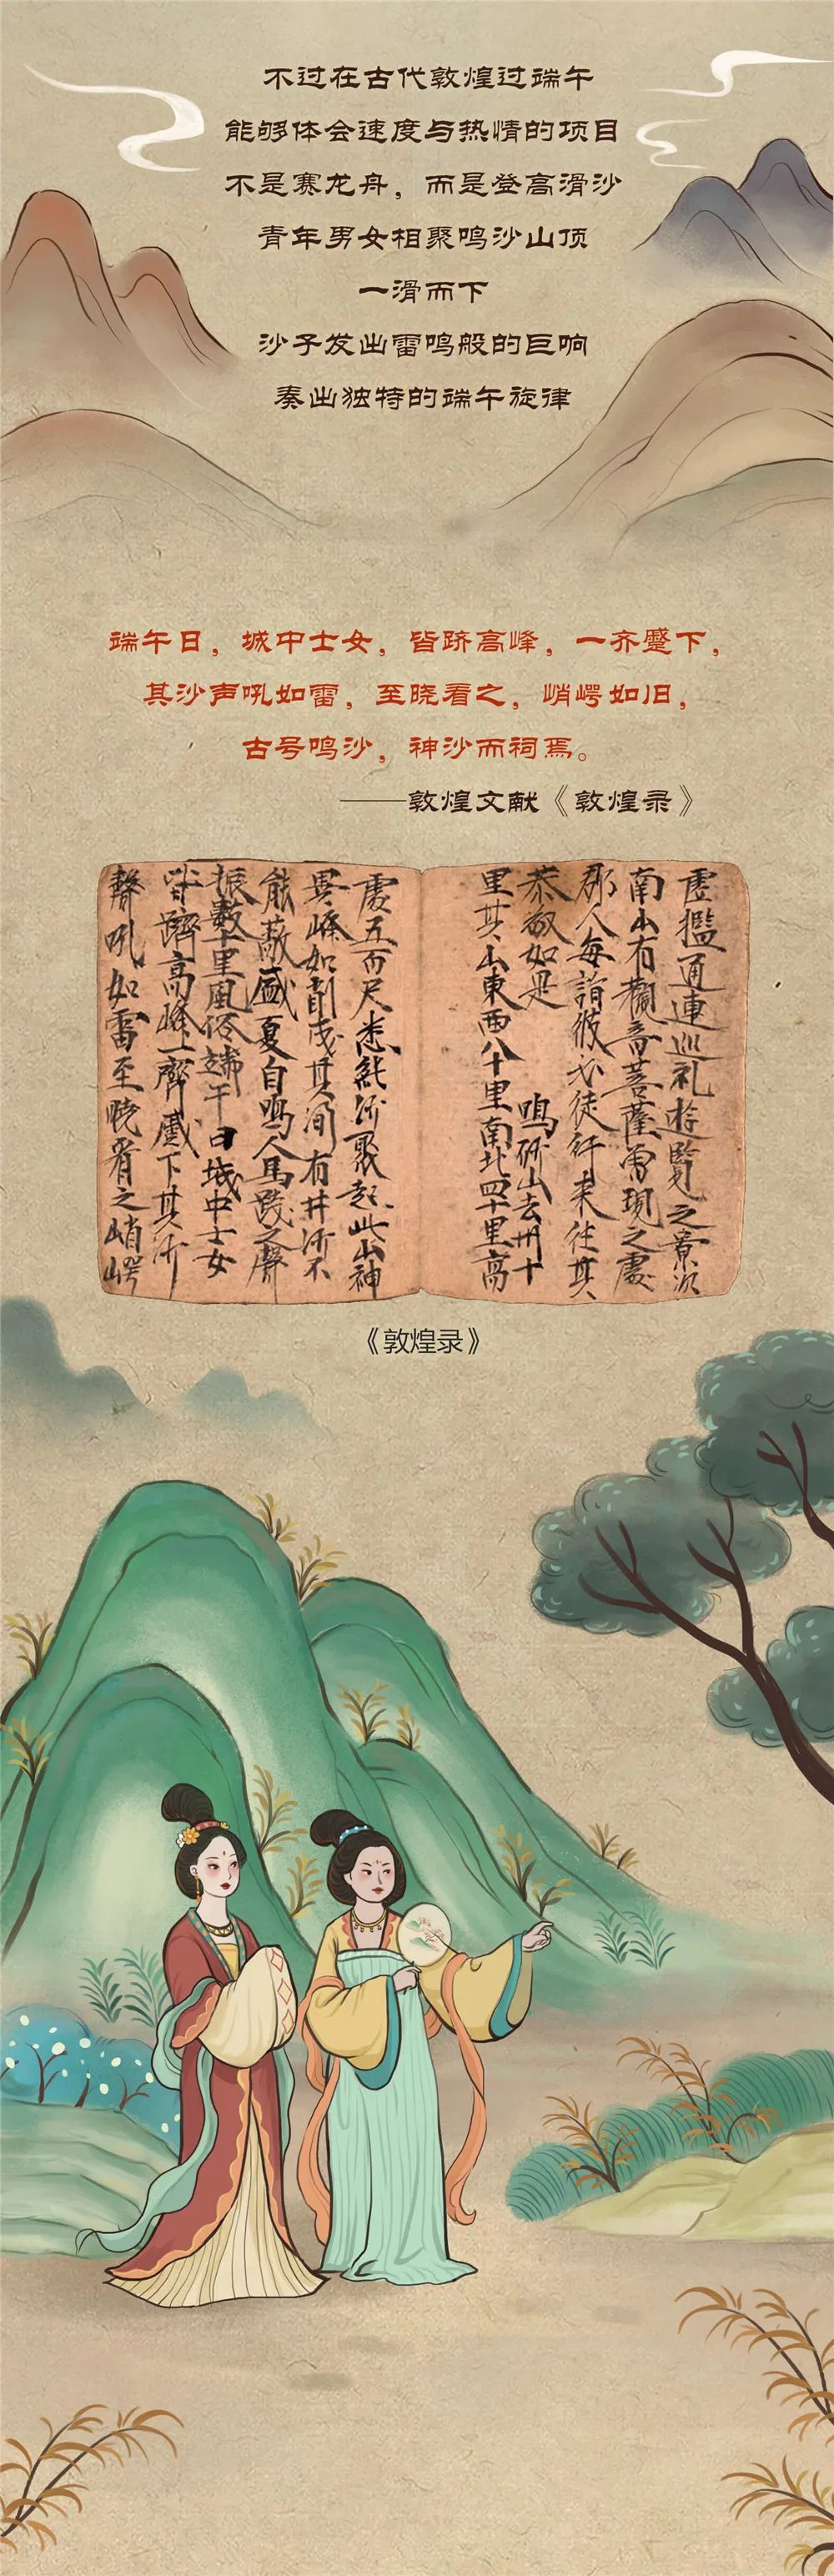 不过在古代敦煌过端午
能够体会速度与热情的项目
不是赛龙舟，而是登高滑沙
青年男女相聚鸣沙山顶
一滑而下
沙子发出雷鸣般的巨响
奏出独特的端午旋律
端午日，城中士女，皆跻高峰，一齐蹙下，
其沙声吼如雷，至晓看之，峭崿如旧，
古号鸣沙，神沙而祠焉。
——敦煌文献《敦煌录》
虚槛通连巡礼遊覽之景次
南山有觀音菩薩曾現之處
郡人每詣彼必徒行来往其
恭敬如是 鳴砂山去州十
里其山東西八十里南北四十里高
處五百尺悉純沙聚起此山神
異峰如削成其間有井沙不
能蔽盛夏自鳴人馬踐之聲
振數十里風俗端午日城中士女
皆躋高峰一齊蹙下其沙
聲吼如雷至曉看之峭崿
《敦煌录》